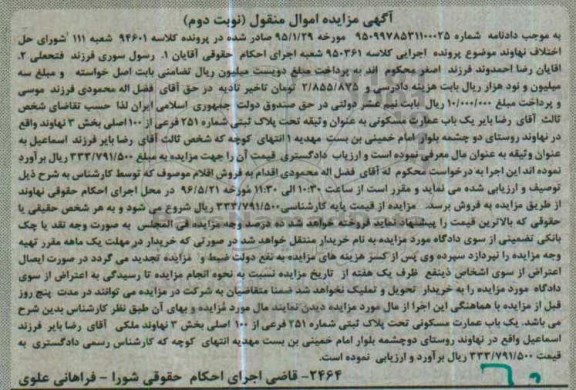 آگهی مزایده اموال منقول (نوبت دوم)
به موجب دادنامه شماره ۹۵۰۹۹۷۸۵۳۱۱۰۰۰۲۵ مورخه ۹۵/۱/۲۹ صادر شده در پرونده کلاسه ۹۴۶۰۱ شعبه ۱۱۱ شورای حل
اختلاف نهاوند موضوع پرونده اجرایی کلاسه ۹۵۰۳۶۱ شعبه اجرای احکام حقوقی آقایان ۱. رسول سوری فرزند فتحعلی ۲.
اقایان رضا احمدوند فرزند اصغر محکوم اند به پرداخت مبلغ دویست میلیون ریال تضامنی بابت اصل خواسته و مبلغ سه
میلیون و نود هزار ریال بابت هزینه دادرسی و ۲/۸۵۵/۸۷۵ تومان تاخیر تادیه در حق آقای فضل اله محمودی فرزند موسی
و پرداخت مبلغ ۱۰/۰۰۰/۰۰۰ ریال بابت نیم عشر دولتی در حق صندوق دولت جمهوری اسلامی ایران لذا حسب تقاضای شخص
ثالث آقای رضا بابر یک باب عمارت مسکونی به عنوان وثیقه تحت پلاک ثبتی شماره ۲۵۱ فرعی از ۱۰۰ اصلی بخش ۳ نهاوند واقع
در نهاوند روستای دو چشمه بلوار امام خمینی بن بست مهدیه ۱ انتهای کوچه که شخص ثالث آقای رضا بابر فرزند اسماعیل به
عنوان وثیقه به عنوان مال معرفی نموده است و ارزیاب دادگستری قیمت آن را جهت مزایده به مبلغ ۳۳۳/۷۹۱/۵۰۰ ریال برآورد
نموده اند این اجرا به درخواست محکوم له آقای فضل اله محمودی اقدام به فروش اقلام موصوف که توسط کارشناس به شرح ذیل
توصیف و ارزیابی شده می نماید و مقرر است از ساعت ۱۰:۳۰ الی ۱۱:۳۰ مورخه ۹۶/۵/۲۱ در محل اجرای احکام حقوقی نهاوند
از طریق مزایده به فروش برسد. مزایده از قیمت پایه کارشناسی ۳۳۳/۷۹۱/۵۰۰ ریال شروع می شود و به هر شخص حقیقی یا
حقوقی که بالاترین قیمت را پیشنهاد نماید فروخته خواهد شد ده درصد وجه مزایده فی المجلس به صورت وجه نقد یا چک
بانکی تضمینی از سوی دادگاه مورد مزایده به نام خریدار منتقل خواهد شد در صورتی که خریدار در مهلت یک ماهه مقرر تهیه
وجه مزایده را نپردازد سپرده وی پس از کسر هزینه های مزایده به نفع دولت ضبط و مزایده تجدید می گردد در صورت ایصال
اعتراض از سوی اشخاص ذینفع ظرف یک هفته از تاریخ مزایده نسبت به نحوه انجام مزایده تا رسیدگی به اعتراض از سوی
دادگاه مورد مزایده را به خریدار تحویل و تملیک نخواهد شد ضمنا متقاضیان به شرکت در مزایده می توانند در مدت پنج روز
قبل از مزایده با هماهنگی این اجرا از مال مورد مزایده دیدن نمایند مال مورد مزایده و بهای آن طبق نظر کارشناس بدین شرح
می باشد. یک باب عمارت مسکونی تحت پلاک ثبتی شماره ۲۵۱ فرعی از ۱۰۰ اصلی بخش ۳ نهاوند ملکی آقای رضا بابر فرزند
اسماعیل واقع در نهاوند روستای دوچشمه بلوار امام خمینی بن بست مهدیه انتهای کوچه که کارشناس رسمی دادگستری به
قیمت ۳۳۳/۷۹۱/۵۰۰ ریال برآورد و ارزیابی نموده است.
۲۴۶۴- قاضی اجرای احکام حقوقی شورا - فراهانی علوی